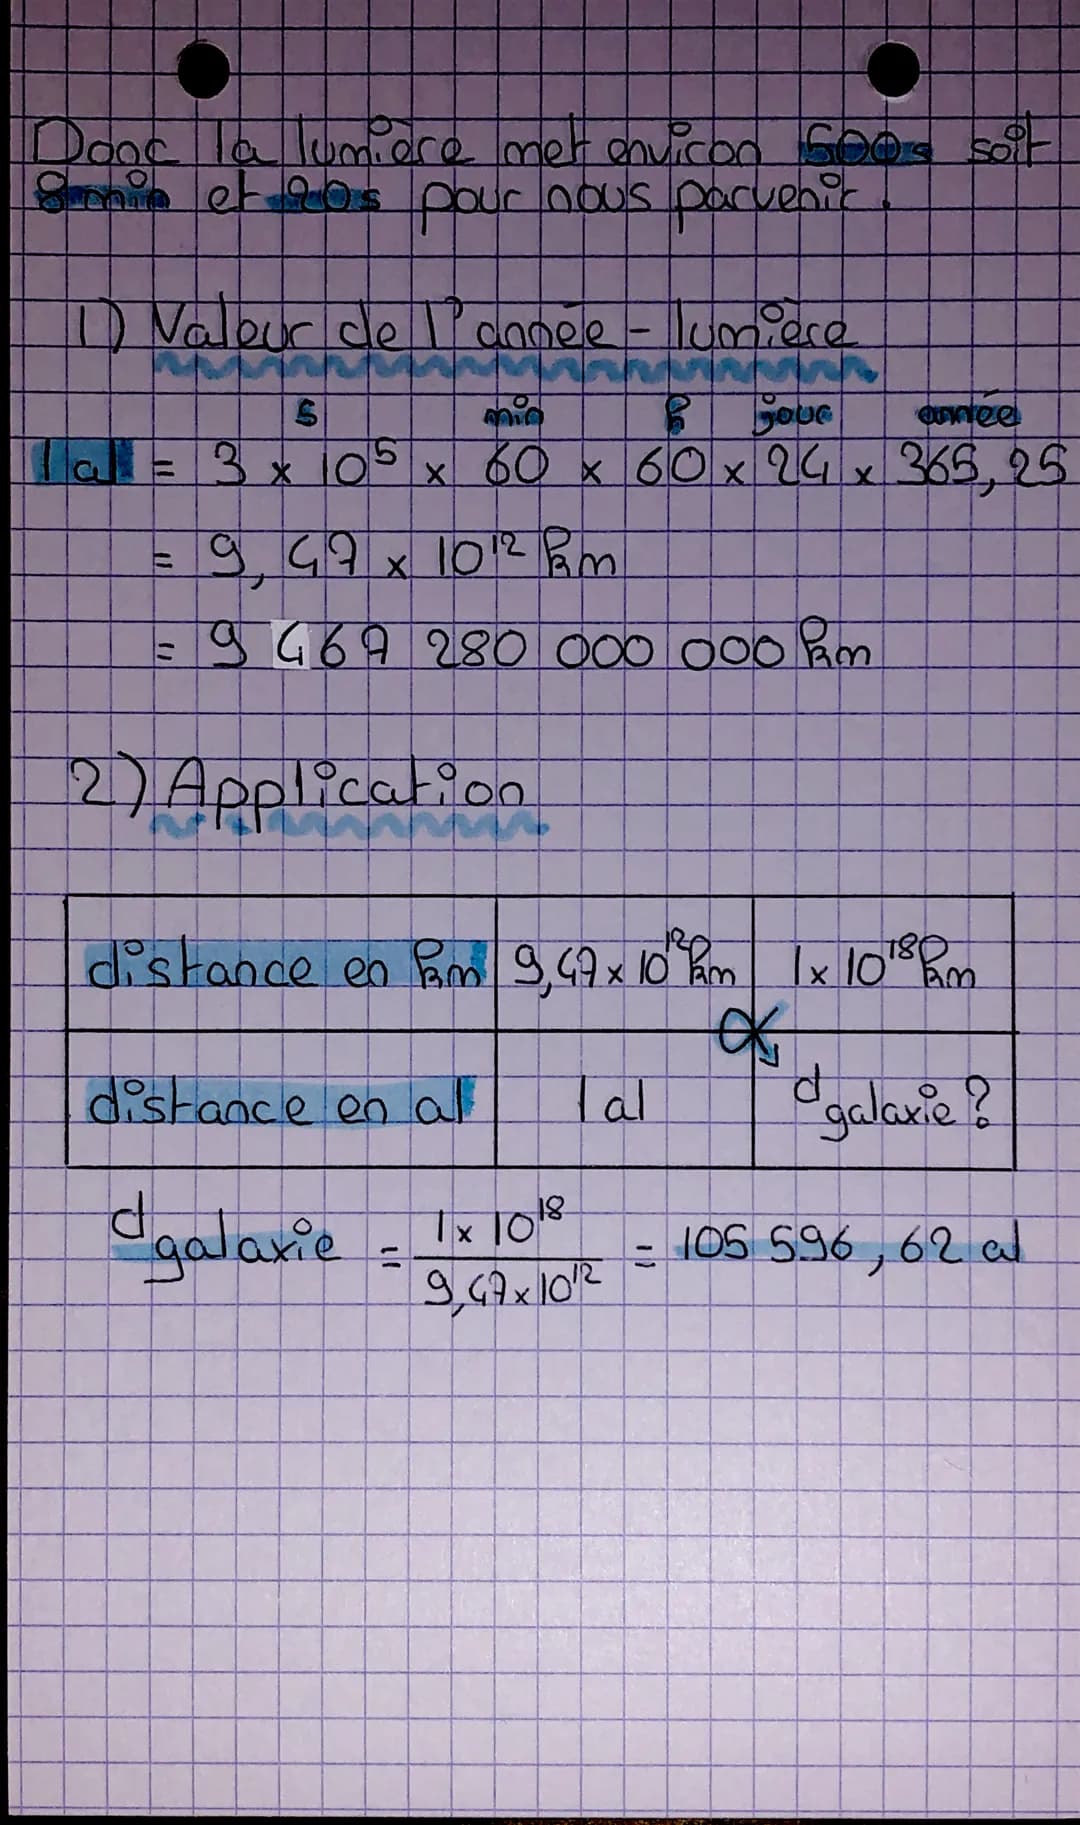 Donc la lumière met environ 500s soit
8 min et 20s pour nous parvenir.
1) Valeur de l'année-lumière
s min h jour année
1 al = 3 x 10⁵ x 60 x 60 x 24 x 365,25
= 9,47 x 10¹² km
= 9 467 280 000 000 km
2) Application
distance en km 9,47 x 10¹² km 1 x 10¹⁸ km
distance en al 1 al d galaxie ?
d galaxie = 1 x 10¹⁸ / 9,47 x 10¹² = 105 596,62 al